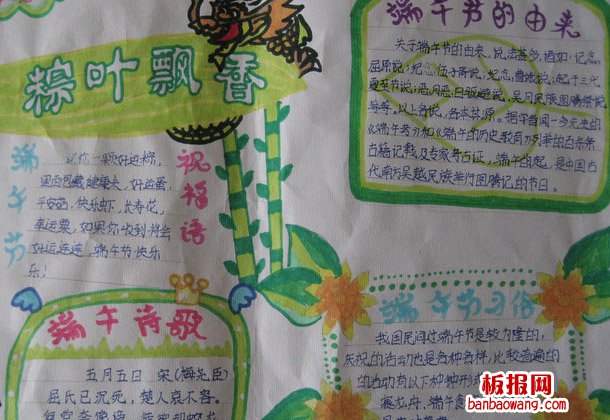 粽叶飘香
端午节
祝福语
送你一颗好运粽,
里面包藏健康长、好运蛋,
平安菇、快乐虾、长寿花,
幸运栗,如果你收到将会
好运连连,端午节快乐
乐!
端午诗歌
五月五日 宋(梅尧臣)
屈氏已沉死,楚人哀不容。
端午节的由来
关于端午节的由来,说法甚多,诸如:纪念
屈原说;纪念伍子胥说;纪念曹娥说;起于三代
夏至节说;恶月恶日驱避说,吴月民族图腾祭说
等等。以上各说,各本其源。据学者闻一多先生的
《端午考》和《端午的历史教育》列举的百余条
古籍记载及专家考古证,端午的起,是中国古
代南方吴越民族举行图腾记的节日。
端午节习俗
我国民间过端午节是较为隆的,
庆祝的活动也是各种各样,比较普遍的
的活动有以下种种形式
赛龙舟、端午
板报网
banbaowang.com